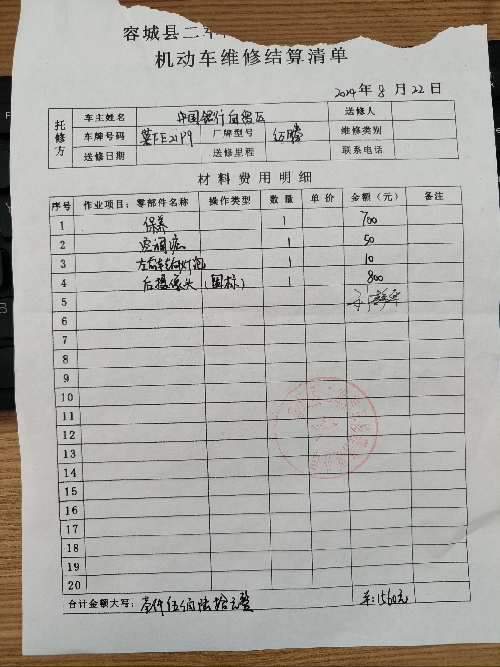 容城县二
机动车维修结算清单
2024年8月22日
托修方 车主姓名 中国银行自贸区 送修人
车牌号码 冀FE21P9 厂牌型号 迈腾 维修类别
送修日期 送修里程 联系电话
材料费用明细
序号 作业项目:零部件名称 操作类型 数量 单价 金额(元) 备注
1 保养 1 700
2 空调滤 1 50
3 左右转向灯泡 1 10
4 后摄像头 (国标) 1 800
5
6
7
8
9
10
11
12
13
14
15
16
17
18
19
20
合计金额大写: 壹仟伍佰陆拾元整 ¥:1560元